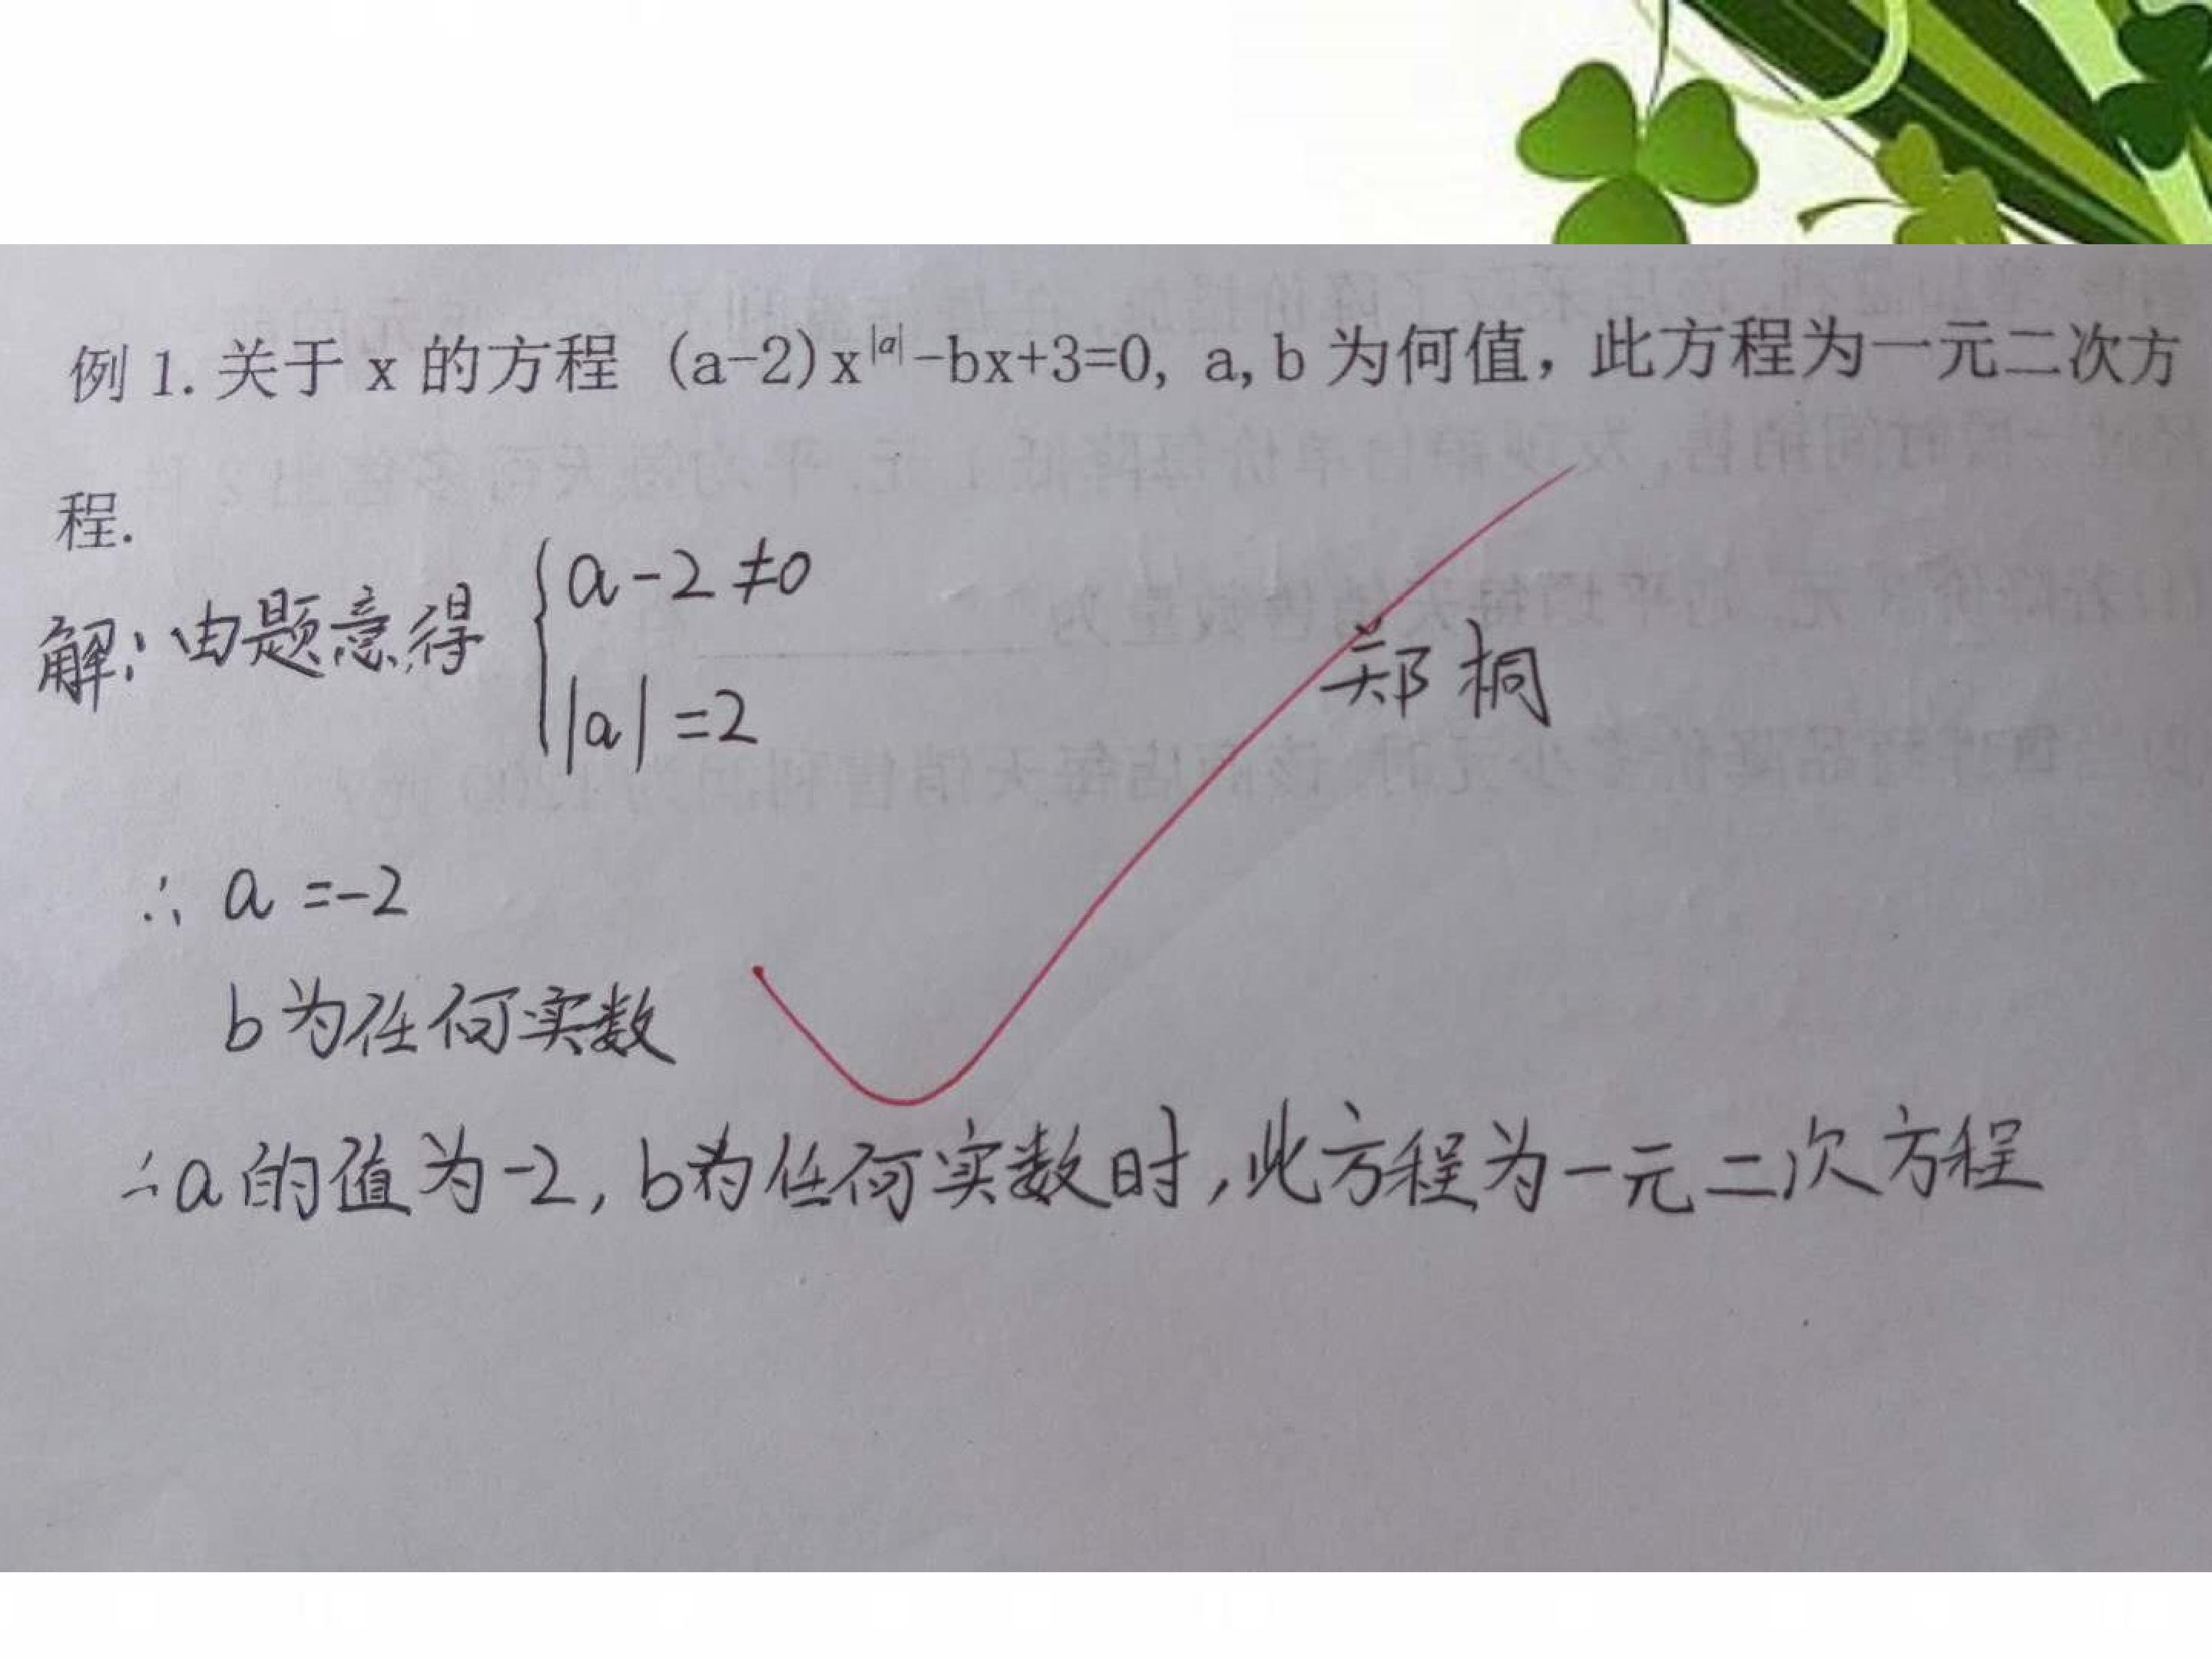 例 1. 关于 x 的方程 (a-2)x^{|a|}-bx+3=0, a, b 为何值，此方程为一元二次方
程.
解：由题意得 { a-2≠0
|a|=2
郑桐
∴ a=-2
b为任何实数
∴a的值为-2, b为任何实数时,此方程为一元二次方程